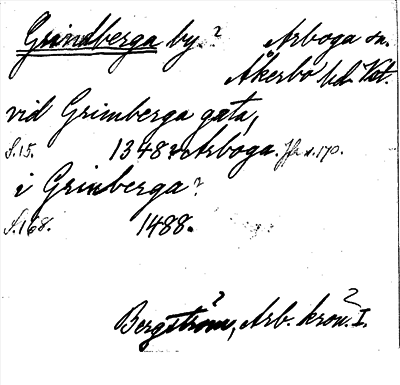 Grindberga by? Arboga sn.
Åkerbo hd. Vst.
vid Grimberga gata,
s. 15. 1348 Arboga. Jfr s. 170.
i Grinberga?
s. 168. 1488.
Bergström, Arb. krön. I.